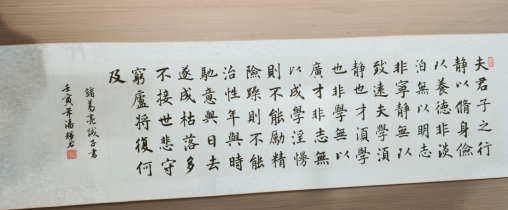 夫君子之行
靜以脩身儉
以養德非淡
泊無以明志
非寧靜無以
致遠夫學須
靜也才須學
也非學無以
廣才非志無
以成學淫慢
則不能勵精
險躁則不能
治性年與時
馳意與日去
遂成枯落多
不接世悲守
窮廬將復何
及
諸葛亮誡子書
壬寅年潘